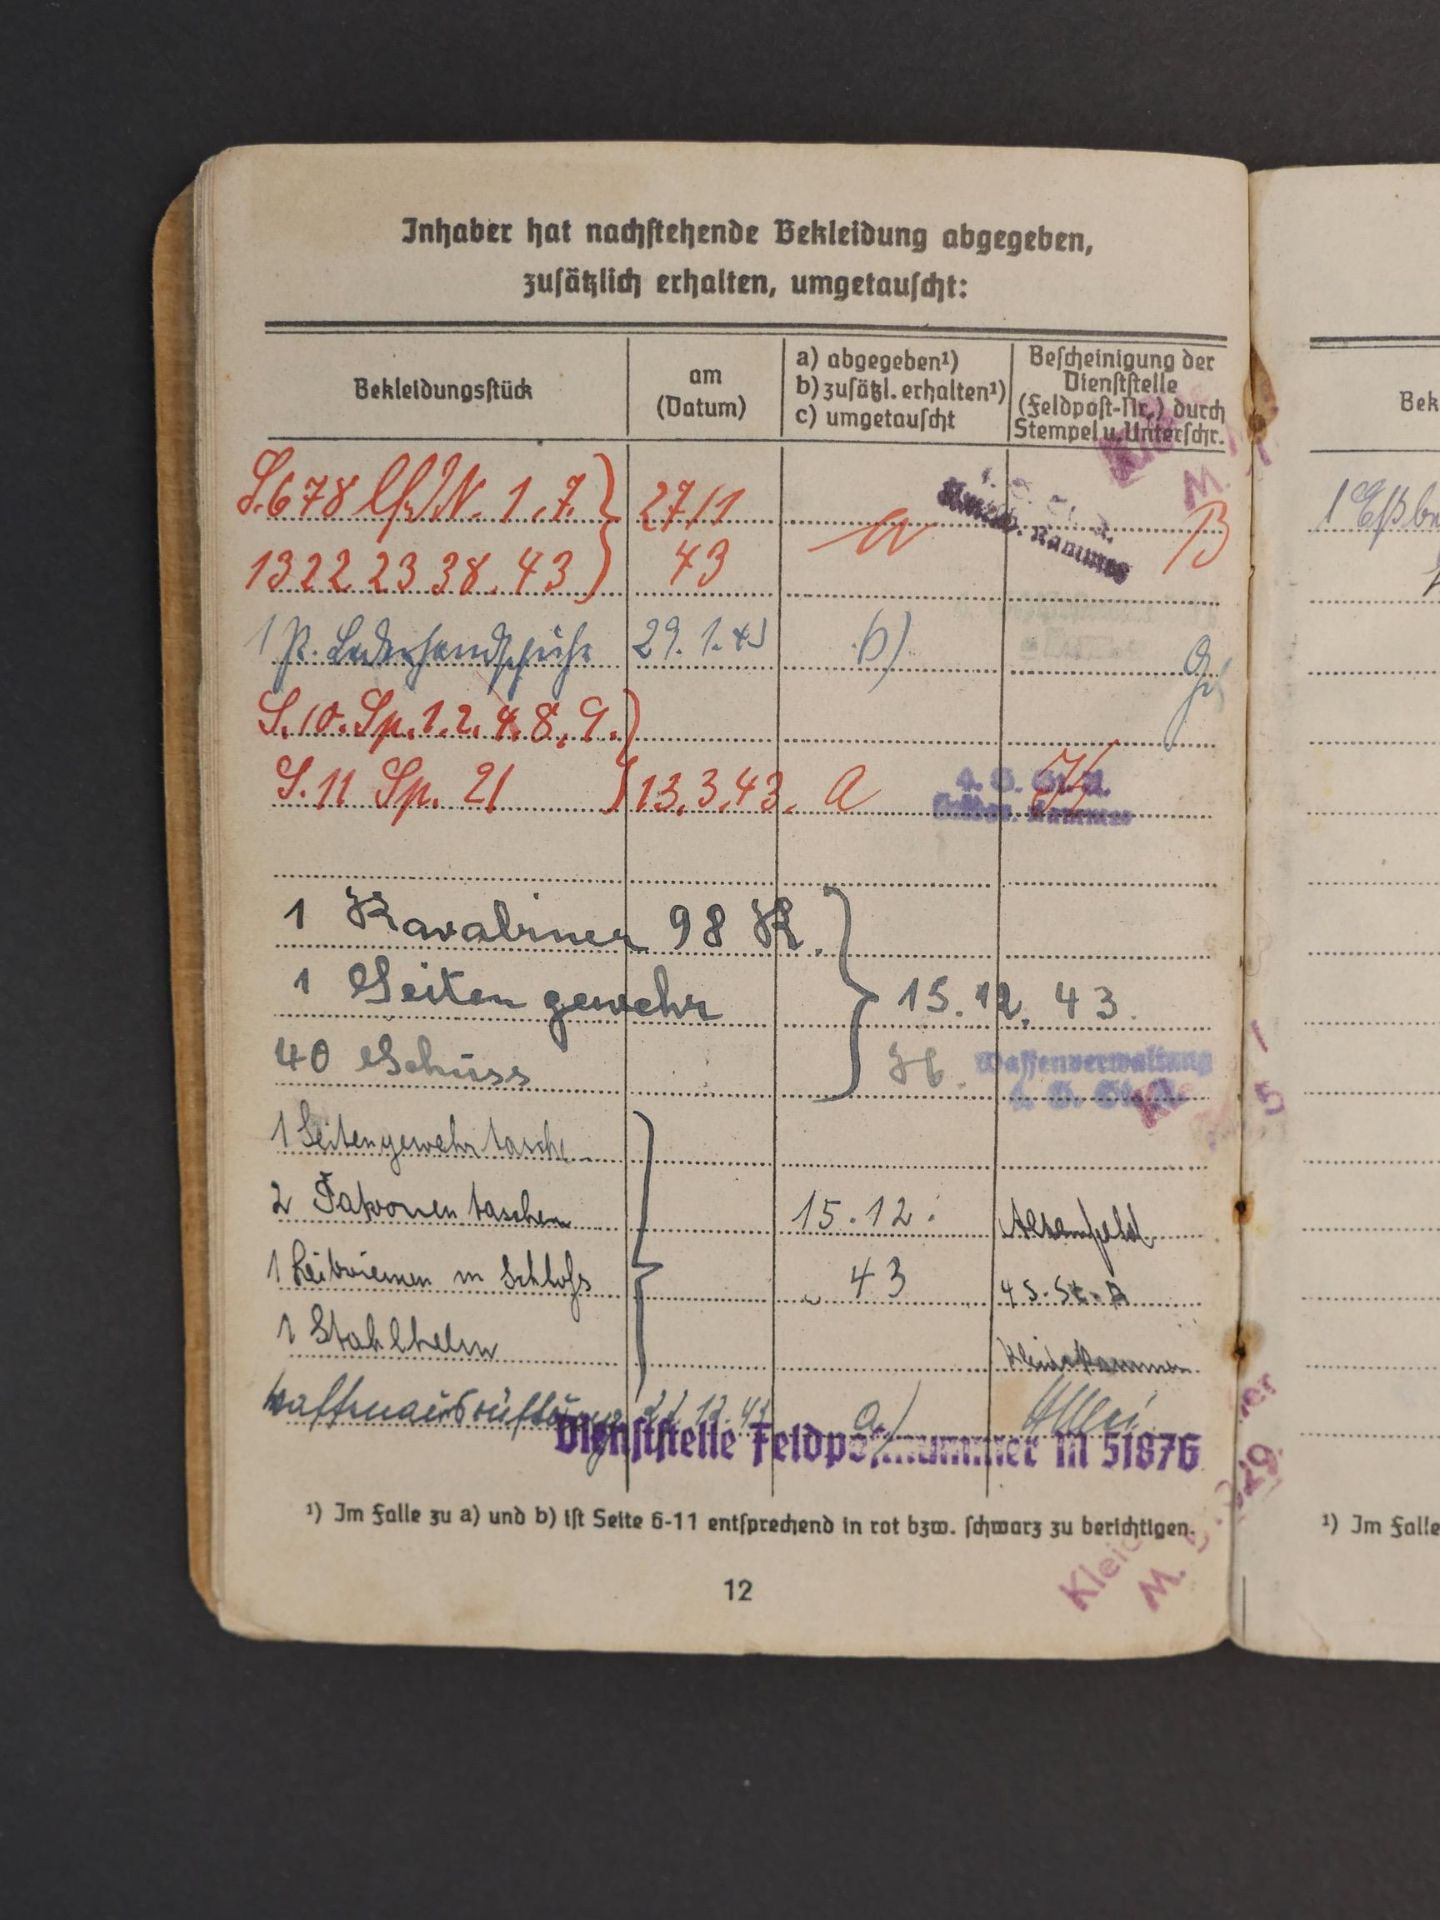 Inhaber hat nachstehende Bekleidung abgegeben,
zusätzlich erhalten, umgetauscht:
Bekleidungsstück
am
(Datum)
a) abgegeben¹)
b) zusätzl. erhalten¹)
c) umgetauscht
Bescheinigung der
Dienststelle
(Feldpost-Nr.) durch
Stempel u. Unterschr.
S. 6 7 8 lfd N. 1, 7. 27/1
13 22 23 38. 43 43 a B
1 P. Lederhandschuhe 29. 1. 43 b)
S. 10. Sp. 1. 2. 4. 8. 9.
S. 11 Sp. 21 13. 3. 43. a
4. S. St. A.
1 Karabiner 98 K.
1 Seitengewehr 15. 12. 43.
40 Schuss
Waffenverwaltung
4. S. St. A.
1 Seitengewehrtasche
2 Patronentaschen 15. 12.
1 Leibriemen m Schloß 43 4 S. St. A
1 Stahlhelm Kleiderkammer
Waffenausrüstung a)
Dienststelle Feldpostnummer M 51876
¹) Im Falle zu a) und b) ist Seite 6-11 entsprechend in rot bzw. schwarz zu berichtigen.
12
Bek
1 Eßbe
¹) Im Falle